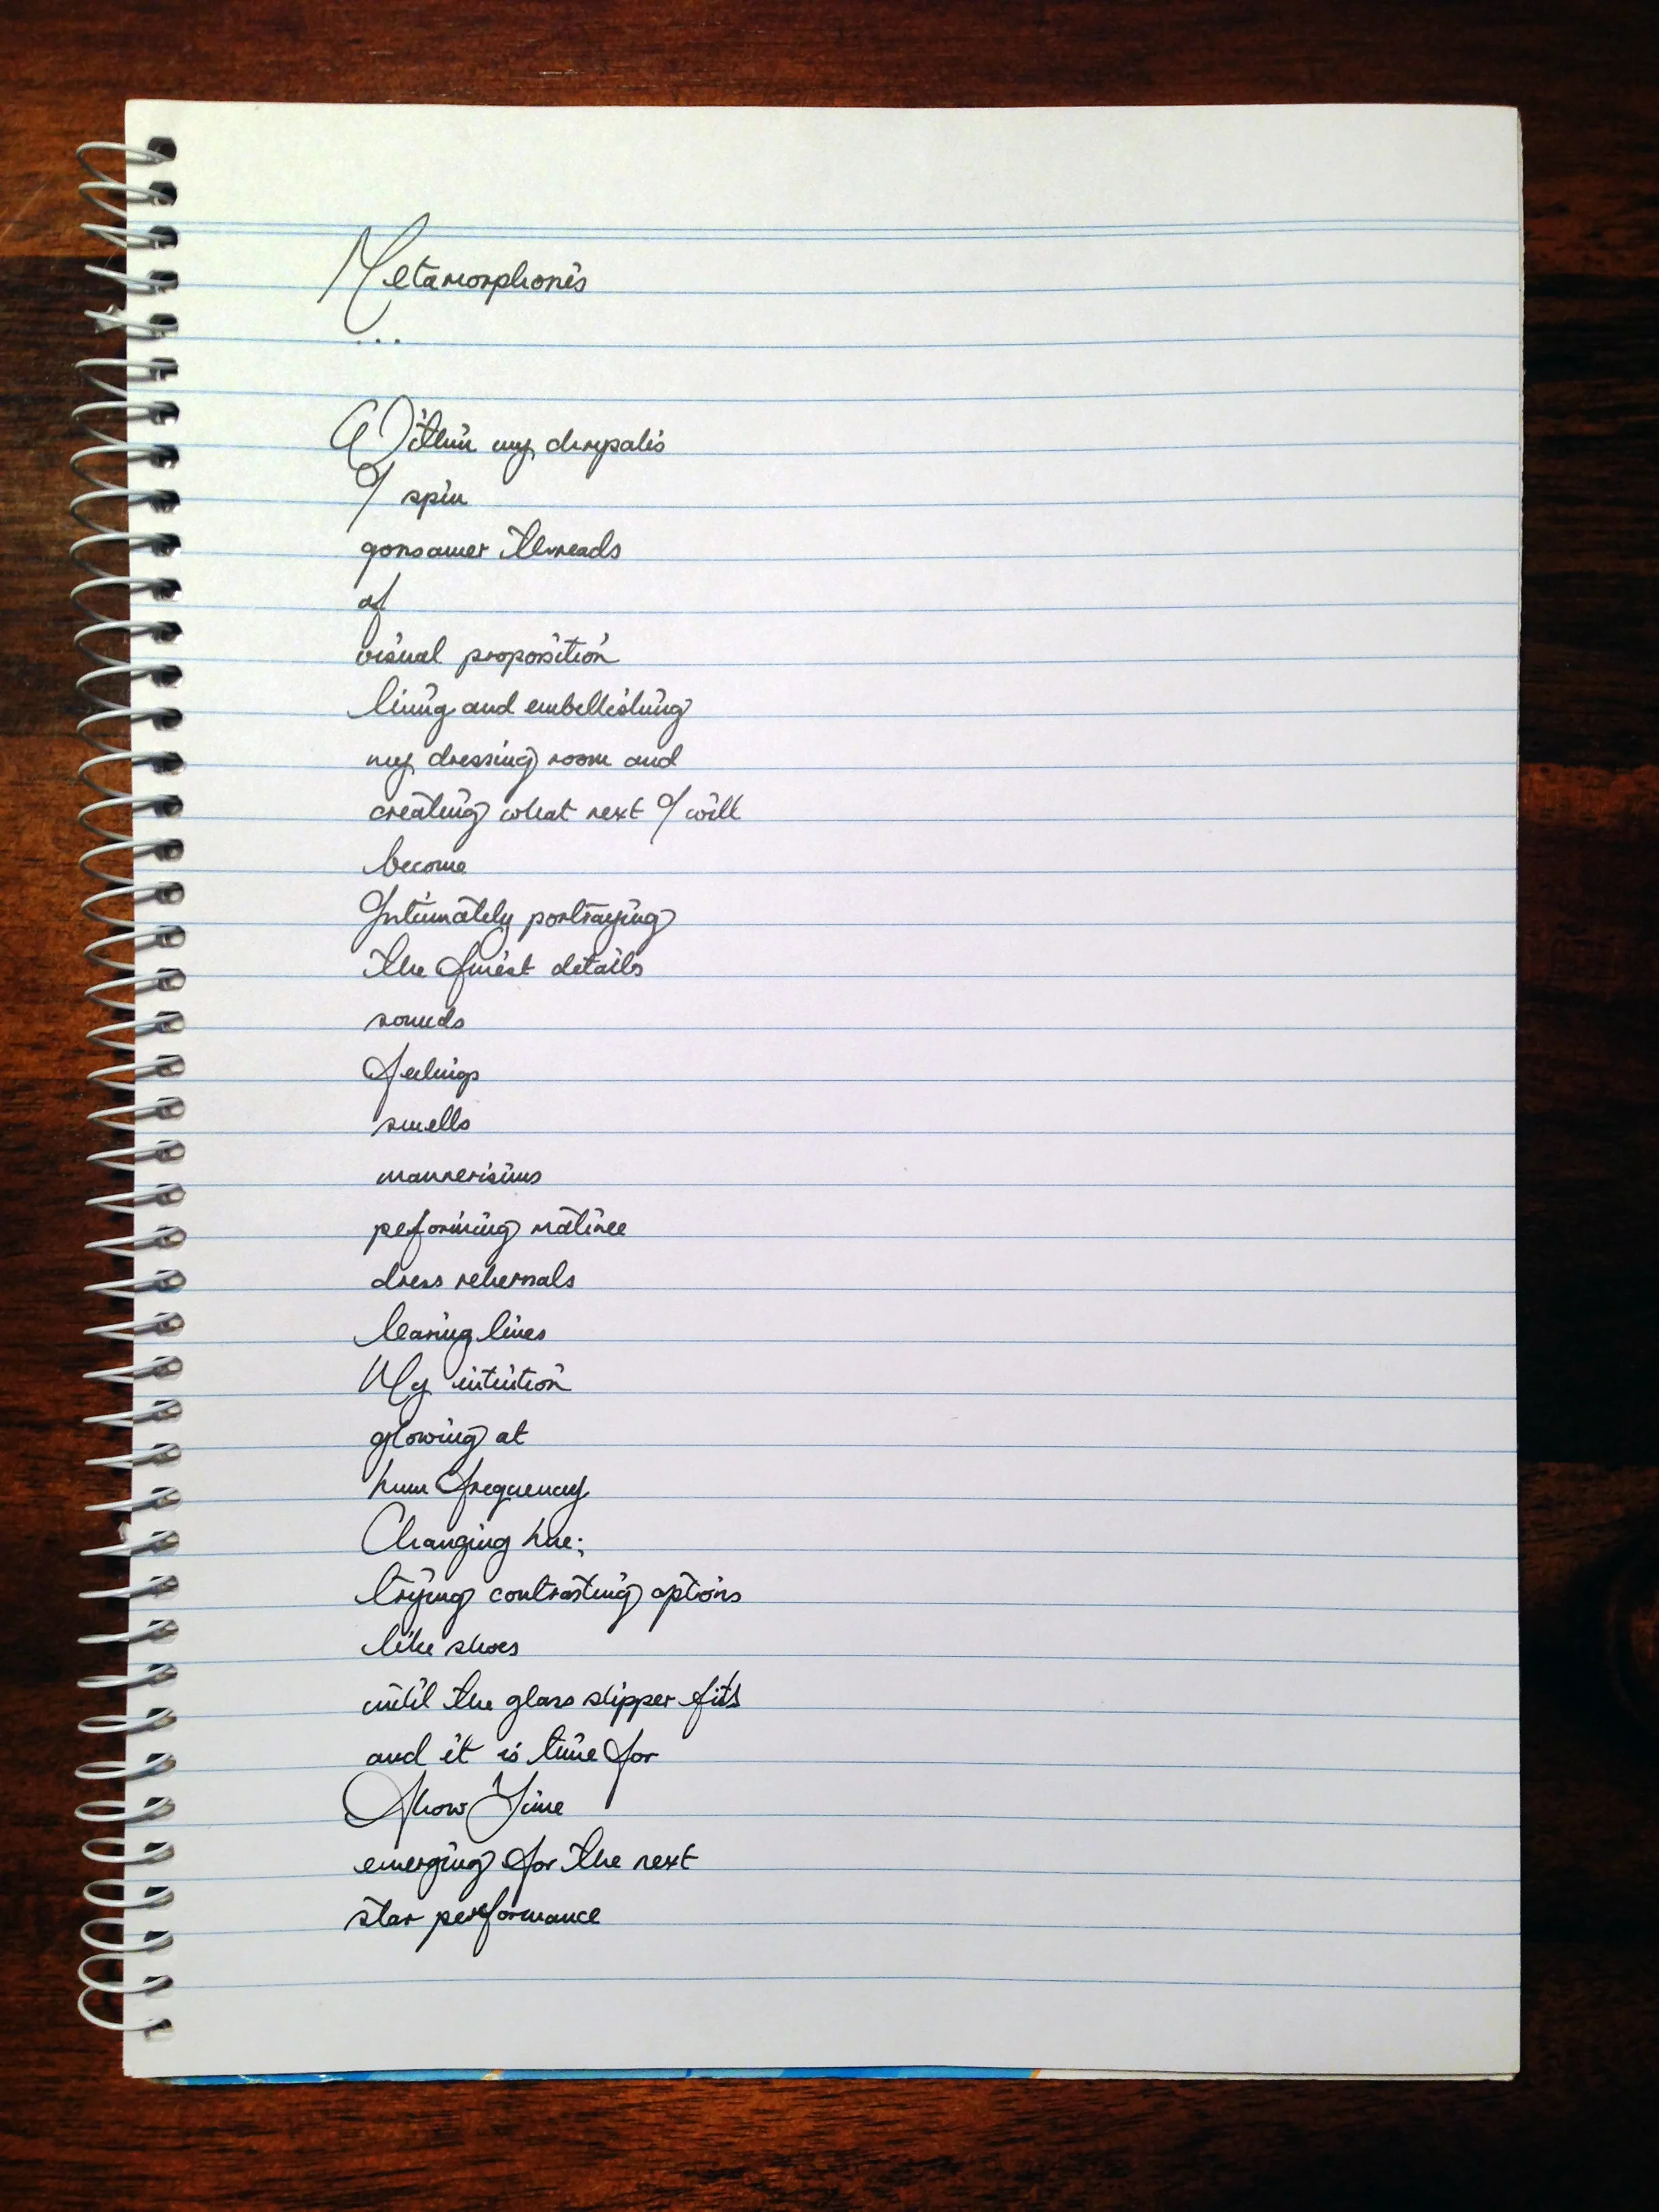 Metamorphosis
...
Within my chrypalis
I spin
gossamer threads
of
visual proposition
lining and embellishing
my dressing room and
creating what next I will
become
Intimately portraying
the finest details
sounds
feelings
smells
mannerisims
peforming matinee
dress rehersals
learing lines
My intuition
glowing at
hum frequency
Changing hue;
trying contrasting options
like shoes
until the glass slipper fits
and it is time for
Show Time
emerging for the next
star performance